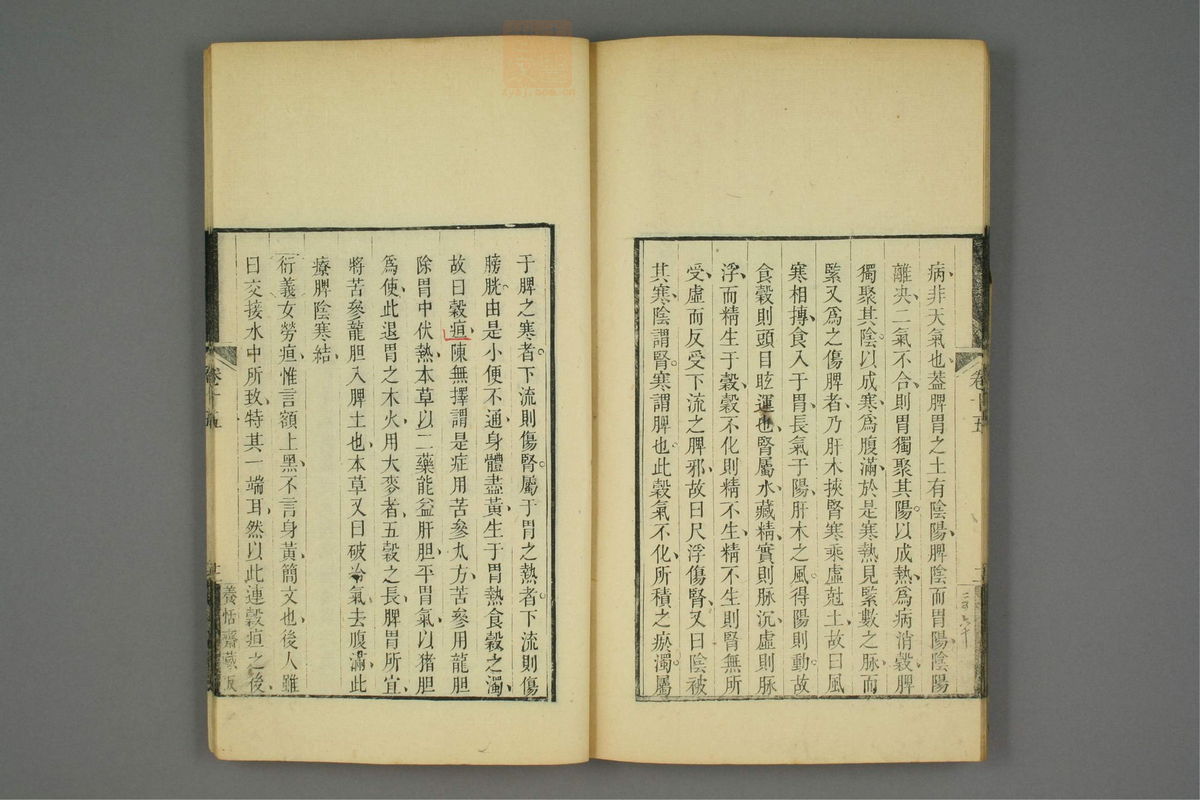 病非天氣也蓋脾胃之土有陰陽脾陰而胃陽陰陽
離決二氣不合則胃獨聚其陽以成熱爲病消穀脾
獨聚其陰以成寒爲腹滿於是寒熱見緊數之脉而
緊又爲之傷脾者乃肝木挾腎寒乘虛尅土故曰風
寒相摶食入于胃長氣于陽肝木之風得陽則動故
食穀則頭目眩運也腎屬水藏精實則脉沉虛則脉
浮而精生于穀穀不化則精不生精不生則腎無所
受虛而反受下流之脾邪故曰尺浮傷腎又曰陰被
其寒陰謂腎寒謂脾也此穀氣不化所積之瘀濁屬
于脾之寒者下流則傷腎屬于胃之熱者下流則傷
膀胱由是小便不通身體盡黃生于胃熱食穀之濁
故曰穀疸陳無擇謂是症用苦參丸方苦參用龍胆
除胃中伏熱本草以二藥能益肝胆平胃氣以猪胆
爲使此退胃之木火用大麥者五穀之長脾胃所宜
將苦參龍胆入脾土也本草又曰破冷氣去腹滿此
療脾陰寒結
衍義女勞疸惟言額上黑不言身黃簡文也後人雖
曰交接水中所致特其一端耳然以此連穀疸之後
卷十五
養恬齋藏板
卷十五